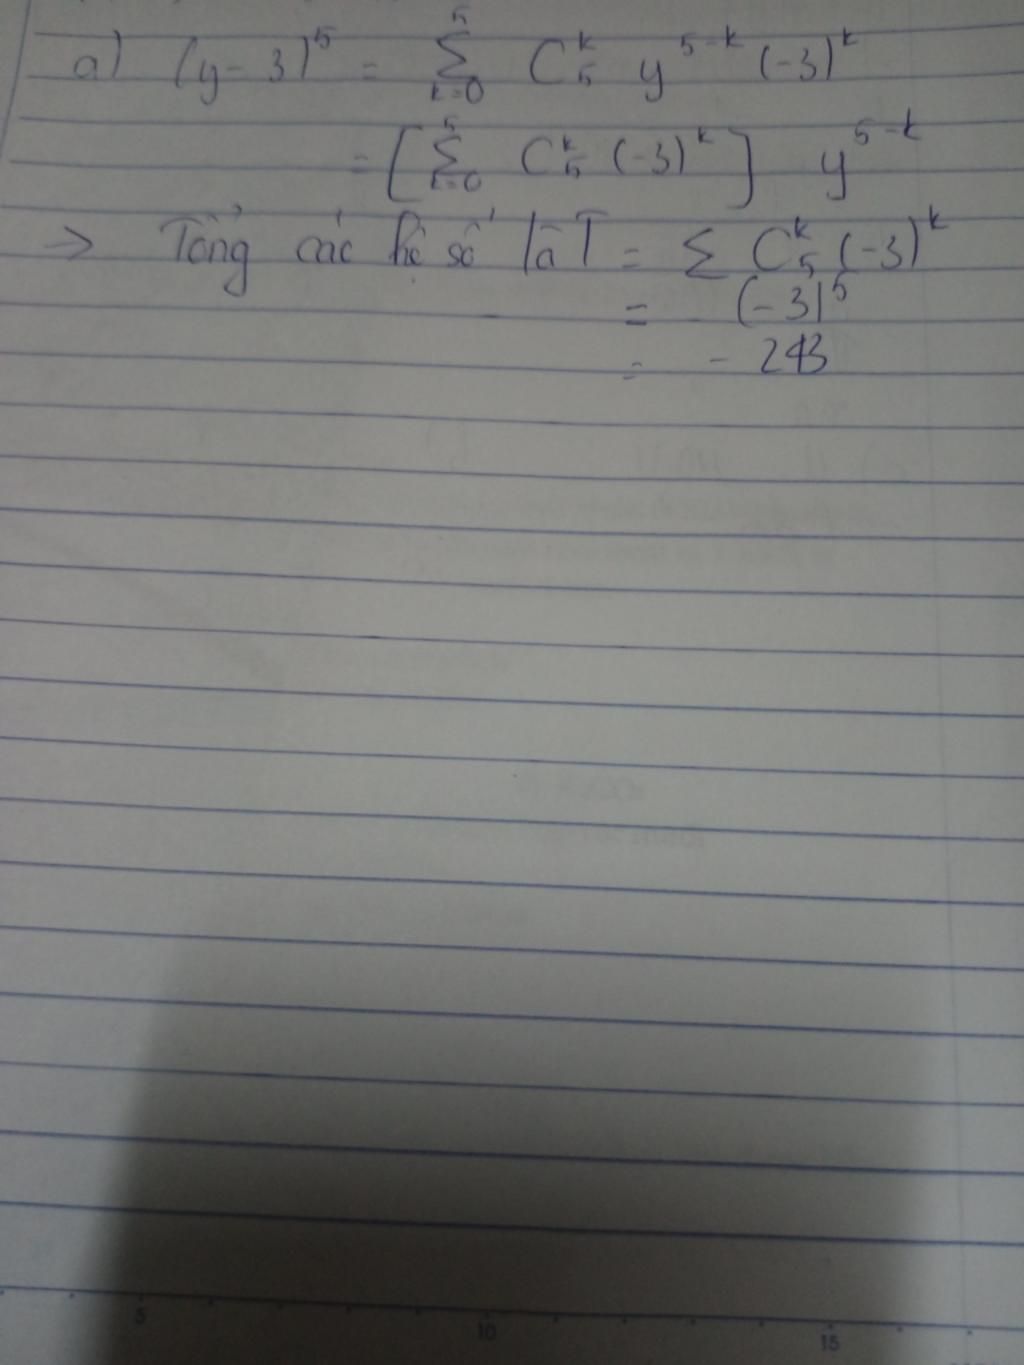 a) (y - 3)^5 = \sum_{k=0}^{5} C_5^k y^{5-k} (-3)^k
= [\sum_{k=0}^{5} C_5^k (-3)^k] y^{5-k}
=> Tổng các hệ số là T = \sum C_5^k (-3)^k
= (-3)^5
= - 243
5 10 15